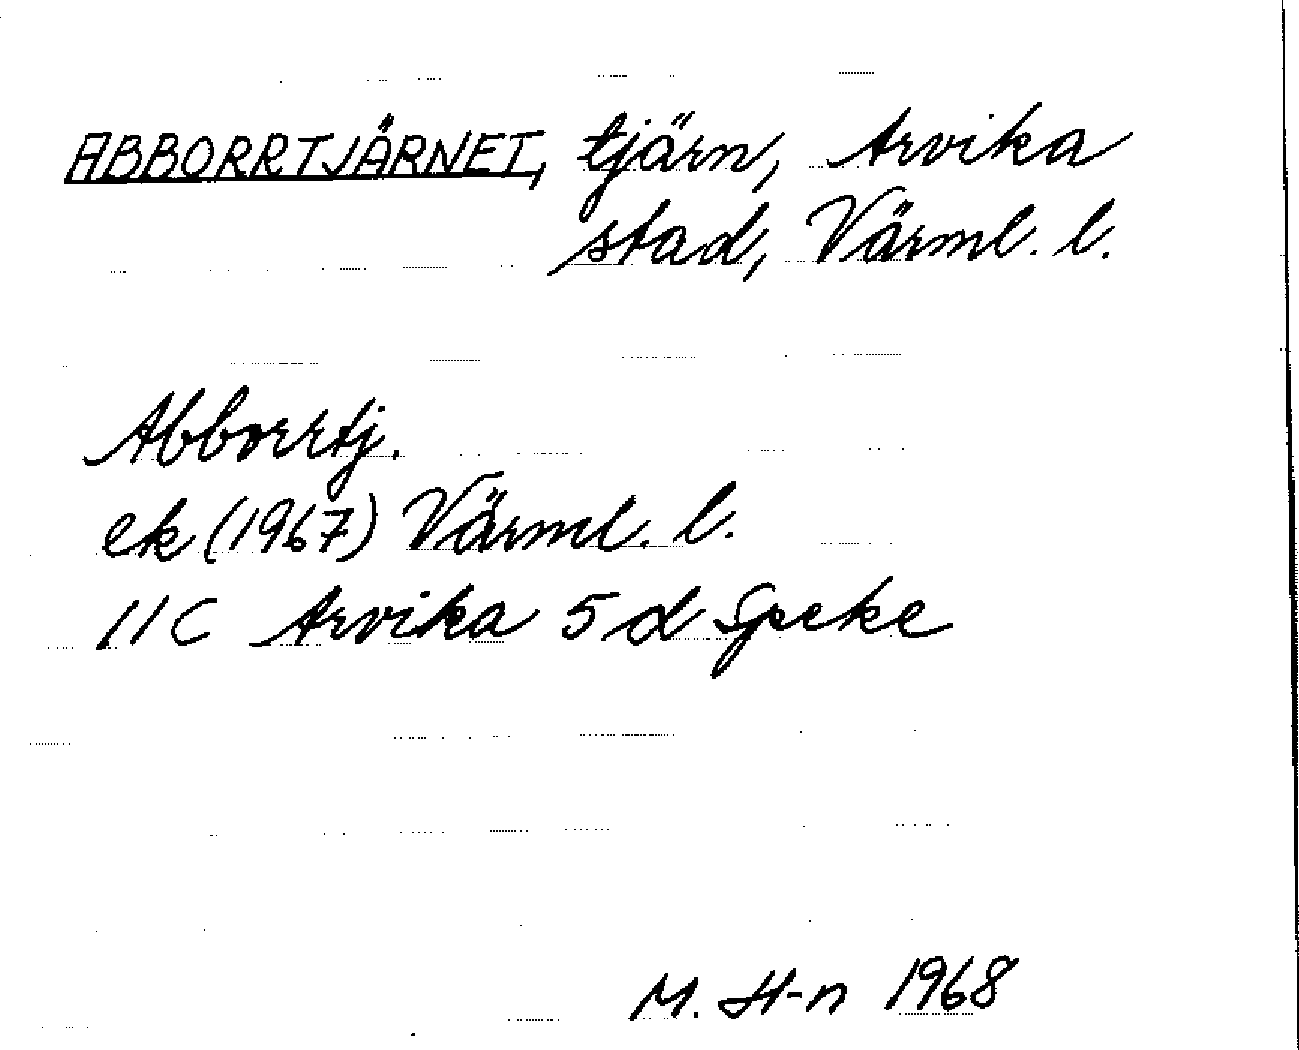 ABBORRTJÄRNET, tjärn, Arvika
stad, Värml. l.
Abborrtj.
ek (1967) Värml. l.
11 C Arvika 5 d Speke
M. H-n 1968